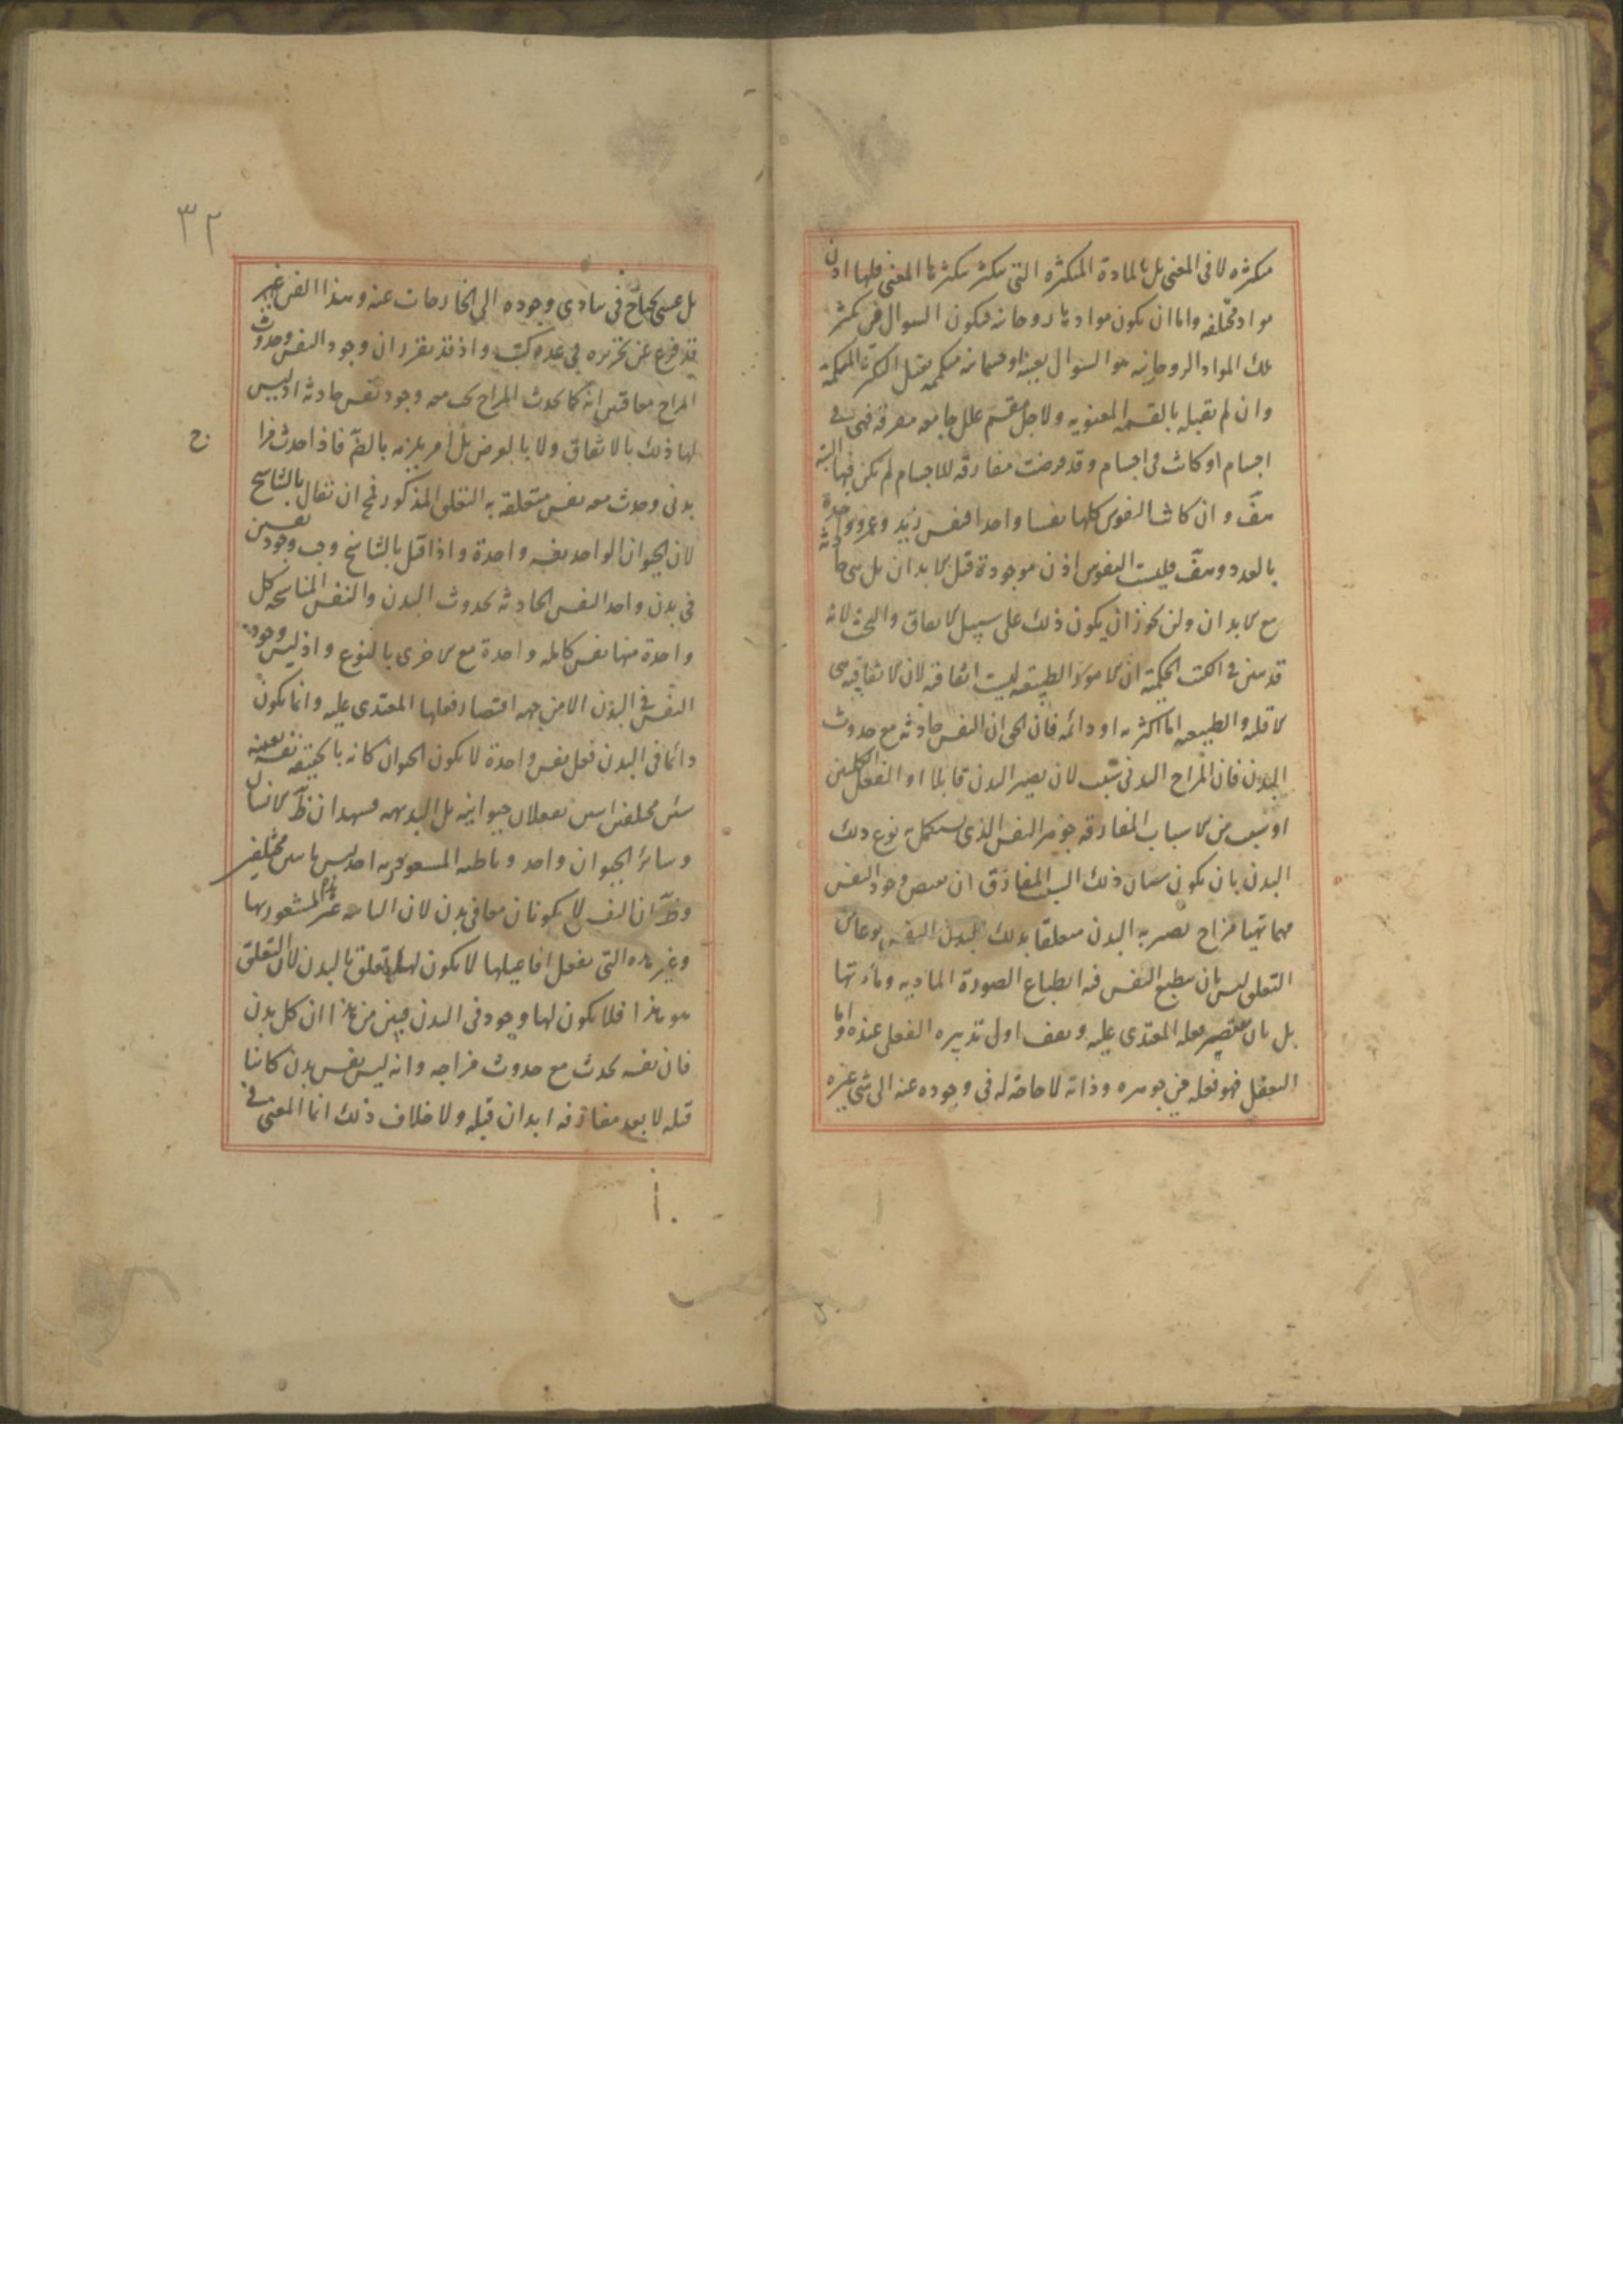 متكثره لا فى المعنى بل بالمادة المتكثره التى يتكثر بتكثرها المعنى فلها اذن
مواد مختلفه واما ان يكون موادها روحانيه فيكون السوال فى تكثر
تلك المواد الروحانيه هو السوال بعينه او جسمانيه متكممه يقبل الكثرة المتكممة
وان لم تقبله بالقسمه المعنويه ولاجل مقسم علل جامعه مفرقه فهى فى
اجسام او كانت فى اجسام وقد فرضت مفارقه للاجسام لم تكن فيها البتة
هف وان كانت النفوس كلها نفسا واحدا فنفس زيد وعمرو واحدة
بالعدد وهف فليست النفوس اذن موجودة قبل الابدان بل هى حادثه
مع الابدان ولن يجوز ان يكون ذلك على سبيل الاتفاق والبخت لانه
قد تبين فى الكتب الحكمية ان الامور الطبيعيه ليست اتفاقيه لان الاتفاقيه هى
الاقليه والطبيعيه اما اكثريه او دائمه فان الحق ان النفس حادثه مع حدوث
البدن فان المزاج البدنى سبب لان يصير البدن قابلا او الفعل
او سبب من الاسباب المفارقه جوهر النفس الذى يستكمل به نوع ذلك
البدن بان يكون شان ذلك السبب المفارق ان يفيض وجود النفس
مهما تهيا مزاج يصير به البدن متعلقا بذلك
التعلق ليس بان ينطبع النفس فيه انطباع الصورة الماديه ومادتها
بل بان يقتصر فعله المعتدى عليه ويقف اول تدبيره الفعلى عنده واما
التعقل فهو فعله من جوهره وذاته لا حاجة له فى وجوده عنه الى شى غيره
٣٢
بل عسى يحتاج فى مبادى وجوده الى الخارجات عنه وهذا الفن غير
قد فرغ عن تحريره فى عدة كتب واذ قد تقرر ان وجود النفس وحدوث
المزاج معا فتبين انه كما يحدث المزاج يجب معه وجود نفس حادثه اذ ليس
لها ذلك بالاتفاق ولا بالعرض بل امر يلزمه بالضرآ فاذا حدث مزا
ج
بدنى وحدث معه نفس متعلقه به التعلق المذكور فمح ان يقال بالتناسخ
لان الحيوان الواحد نفسه واحدة واذا قيل بالتناسخ وجب وجود نفسين
فى بدن واحد النفس الحادثه بحدوث البدن والنفس المناسخه كل
واحدة منها نفس كامله واحدة مع الاخرى بالنوع واذ ليس وجود
النفس فى البدن الا من جهه اقتصار فعلها المعتدى عليه وانما يكون
دائما فى البدن فعل نفس واحدة لا يكون الحيوان كانه بالحقيقه نفسه بعينه
بل البديهه تشهد ان ظآ الانسان
وسائر الحيوان واحد وباطنه المشعور به احد ليس
وظآ ان النفس لا يكونان معا فى بدن لان الثانيه غير المشعور بها
وغير هذه التى تفعل افاعيلها لا يكون لها تعلق بالبدن لان التعلق
هو هذا فلا يكون لها وجود فى البدن فبين من هذا ان كل بدن
فان نفسه يحدث مع حدوث مزاجه وانه ليس نفس بدن كائنا
قبله لا بعد مفارقه ابدان قبله ولا خلاف ذلك انما المعنى فى